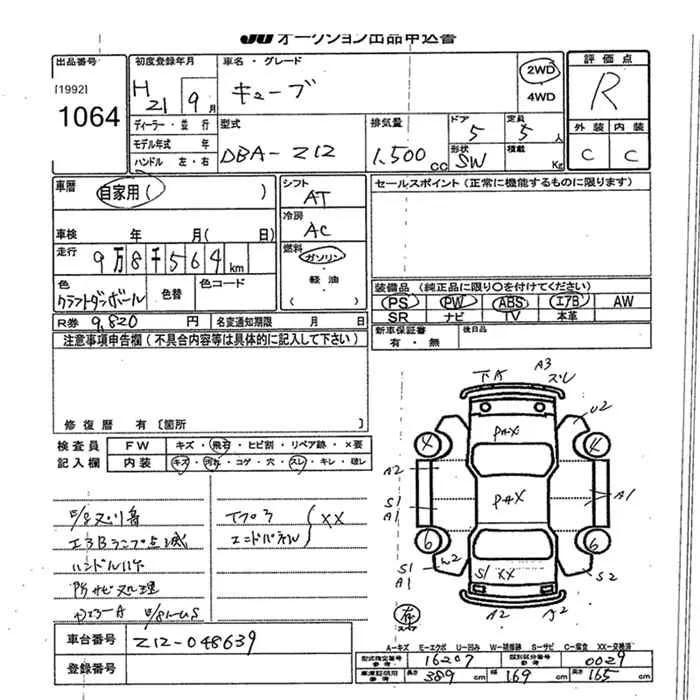 JU オークション出品申込書
出品番号
[1992]
1064
初度登録年月
H 21 9月
車名・グレード
キューブ
2WD
4WD
評価点
R
外装 内装
C C
ディーラー・並行
モデル年式 年
ハンドル 左・右
型式
DBA-Z12
排気量
1,500 CC
ドア
5
定員
5人
形状
SW
積載
Kg
車歴
自家用( )
車検 年 月( 日)
走行
9万8千564km
色
クラフトダンボール
色替
色コード
シフト
AT
冷房
AC
燃料
ガソリン
軽油
セールスポイント(正常に機能するものに限ります)
装備品(純正品に限り○を付けてください)
PS PW ABS エアB AW
SR ナビ TV 本革
新車保証書
有・無
後日品
R券 9,820 円 名変通知期限 月 日
注意事項申告欄(不具合内容等は具体的に記入して下さい)
修復歴 有[箇所
検査員
記入欄
FW キズ・飛石・ヒビ割・リペア跡・×要
内装 キズ・汚れ・コゲ・穴・スレ・キレ・破レ
エアBランプ点滅
ハンドルハゲ
所々サビ処理
Tプラ
エンドパネル
(XX
下A
A3
スレ
U2
PAX
4
4
A2
S1
A1
PAX
A1
6
6
S1
A1
S1 XX
S2
A2
A2
有
スペア
A-キズ E-エクボ U-凹み W-補修跡 S-サビ C-腐食 XX-交換済
車台番号 Z12-048639
登録番号
型式指定番号
参考
16207
類別区分番号
参考
0029
車庫証明用
参考
長さ 389 cm 幅 169 cm 高さ 165 cm